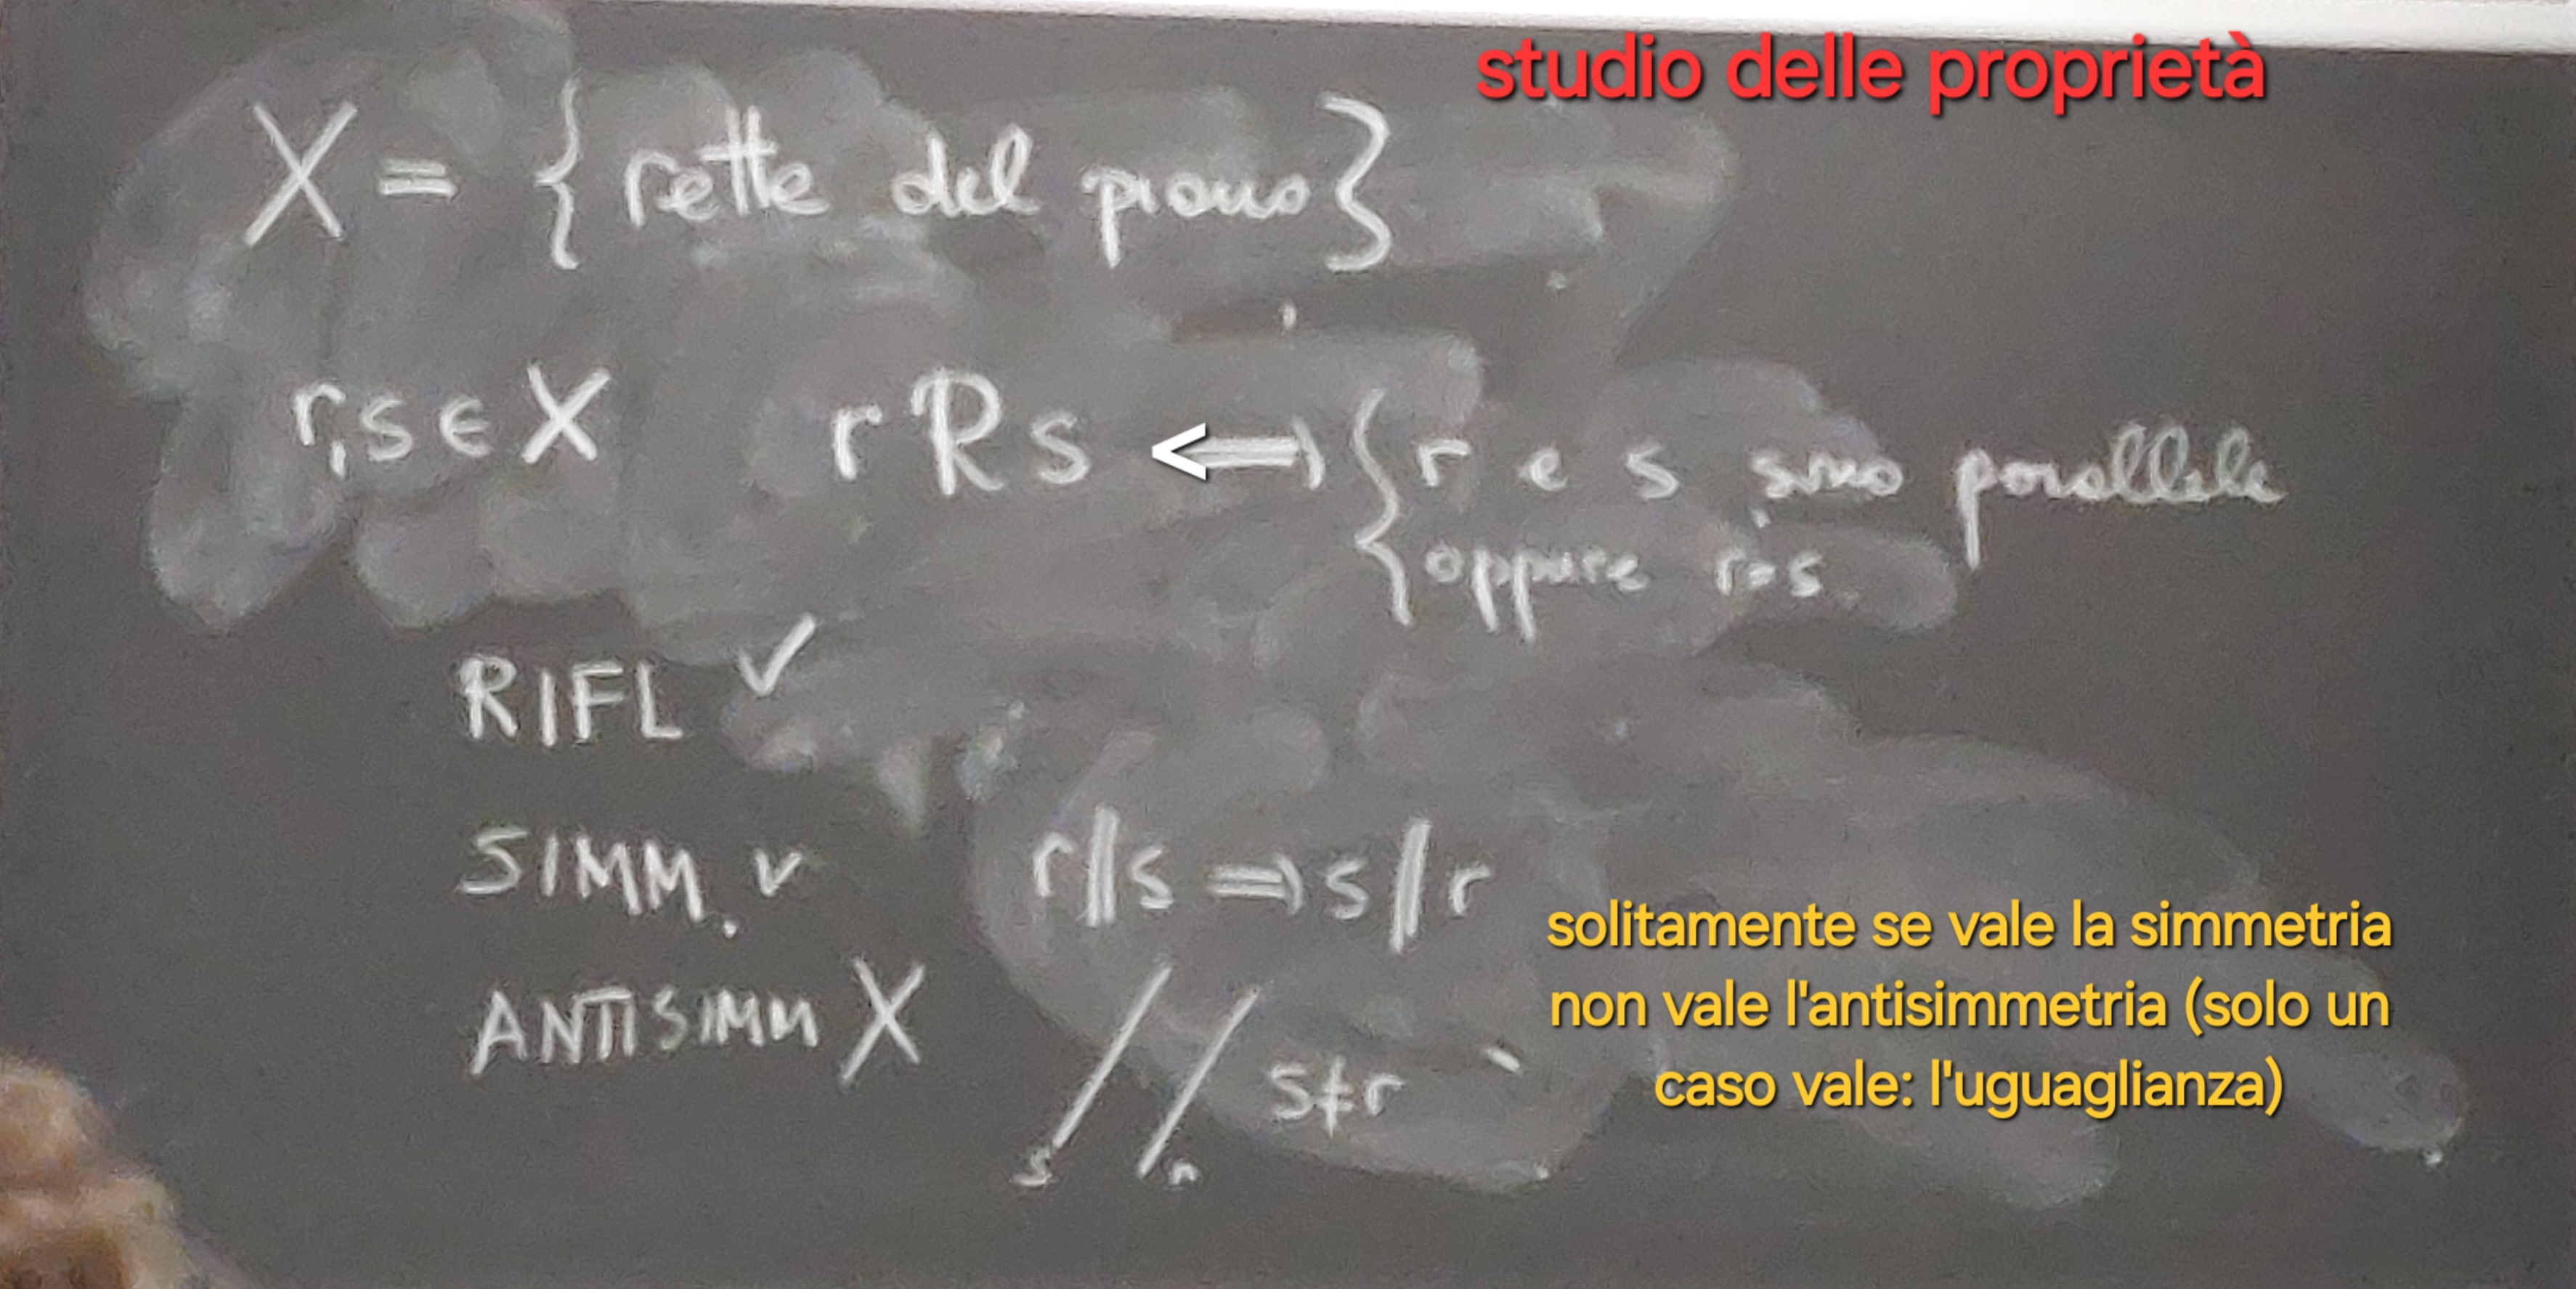 studio delle proprietà
X = { rette del piano }
r,s ∈ X   r R s <=> { r e s sono parallele
oppure r=s.
RIFL ✓
SIMM. v   r∥s ⇒ s∥r
ANTISIMM X
s≠r
s   r
solitamente se vale la simmetria
non vale l'antisimmetria (solo un
caso vale: l'uguaglianza)